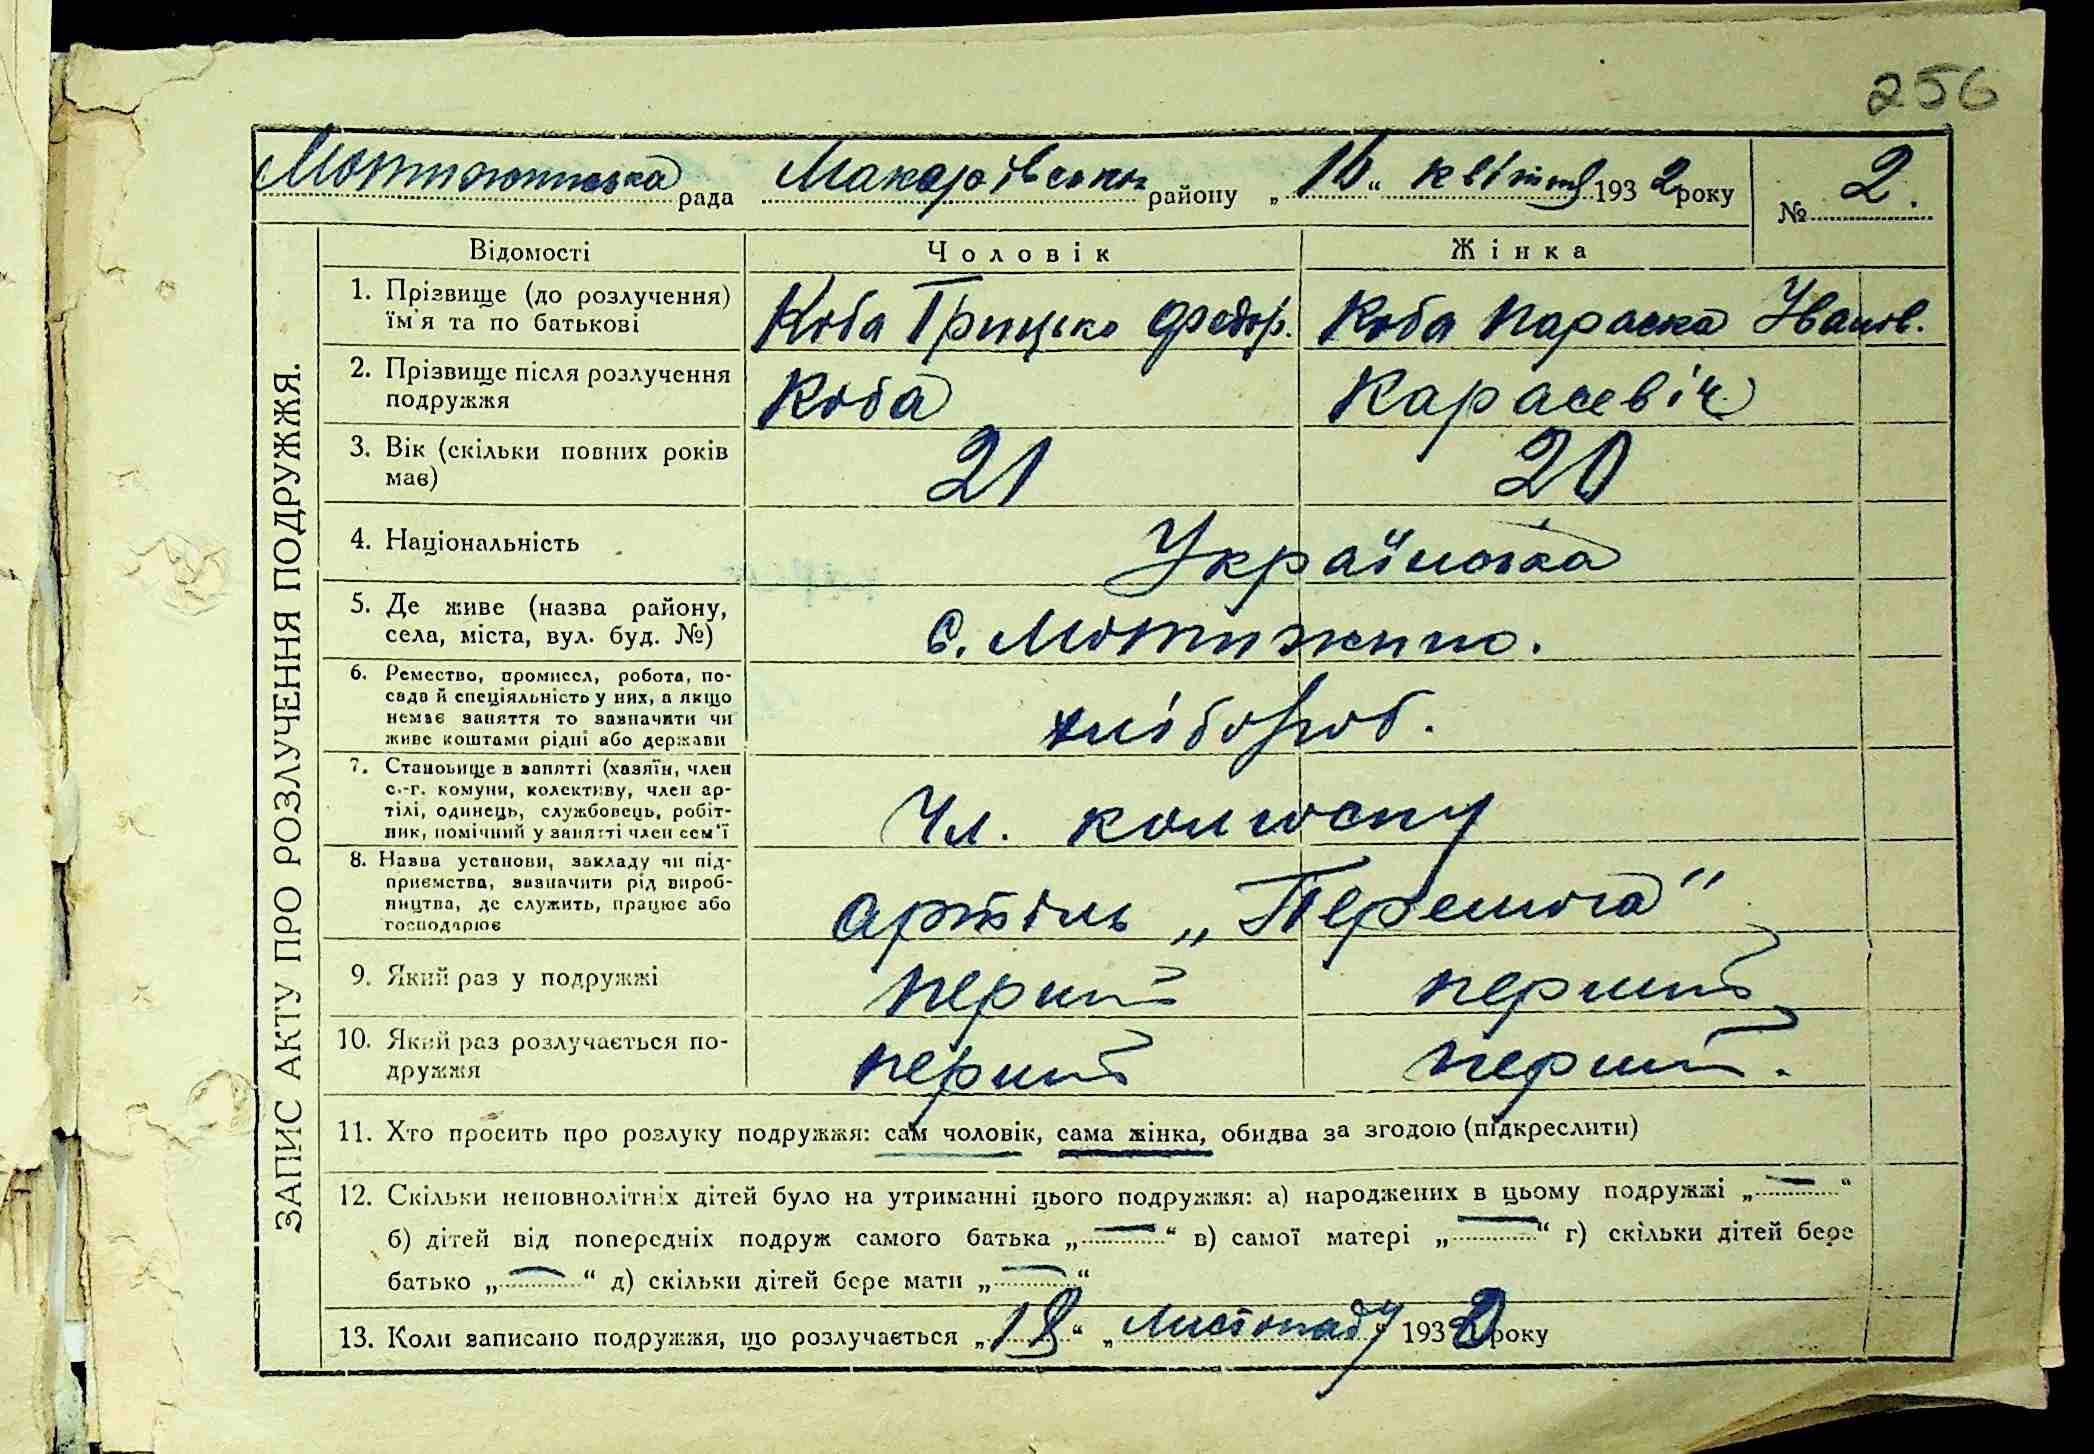 256
Мотижинська рада Макарівськ району „16“ квітня 1932 року № 2.
ЗАПИС АКТУ ПРО РОЗЛУЧЕННЯ ПОДРУЖЖЯ.
Відомості Чоловік Жінка
1. Прізвище (до розлучення) їм'я та по батькові Коба Грицько Федор. Коба Параска Іванов.
2. Прізвище після розлучення подружжя Коба Карасевіч
3. Вік (скільки повних років має) 21 20
4. Національність Українська
5. Де живе (назва району, села, міста, вул. буд. №) с. Мотижин.
6. Ремество, промисел, робота, по-
сада й спеціяльність у них, а якщо
немає заняття то зазначити чи
живе коштами рідні або держави хлібороб.
7. Становище в занятті (хазяїн, член
с.-г. комуни, колективу, член ар-
тілі, одинець, службовець, робіт-
ник, помічний у занятті член сем'ї Чл. колгоспу
8. Назва установи, закладу чи під-
приємства, зазначити рід вироб-
ництва, де служить, працює або
господарює артіль „Перемога“
9. Який раз у подружжі перший перший
10. Який раз розлучається по-
дружжя перший перший.
11. Хто просить про розлуку подружжя: сам чоловік, сама жінка, обидва за згодою (підкреслити)
12. Скільки неповнолітніх дітей було на утриманні цього подружжя: а) народжених в цьому подружжі „—“
б) дітей від попередніх подруж самого батька „—“ в) самої матері „—“ г) скільки дітей бере
батько „—“ д) скільки дітей бере мати „—“
13. Коли записано подружжя, що розлучається „18“ „Листопаду“ 1930 року